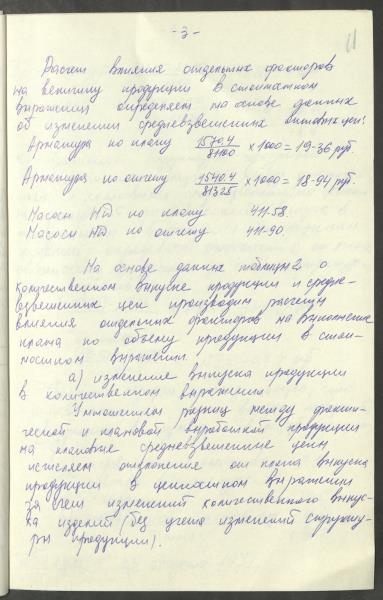 -3-
11
Расчет влияния отдельных факторов
на величину продукции в стоимостном
выражении определяем на основе данных
об изменении средневзвешенных оптовых цен:
Арматура по плану 1570.4/81100 x 1000 = 19-36 руб.
Арматура по отчету 1540.4/81325 x 1000 = 18-94 руб.
Насосы НД по плану 411-58.
Насосы НД по отчету 411-90.
На основе данных таблицы 2 о
количественном выпуске продукции и средне-
взвешенных цен производим расчеты
влияния отдельных факторов на выполнение
плана по объему продукции в стои-
мостном выражении.
а) изменение выпуска продукции
в количественном выражении
Умножением разниц между факти-
ческой и плановой выработкой продукции
на плановые средневзвешенные цены
исчисляем отклонение от плана выпуска
продукции в ценностном выражении
за счет изменений количественного выпус-
ка изделий (без учета изменений структу-
ры продукции).